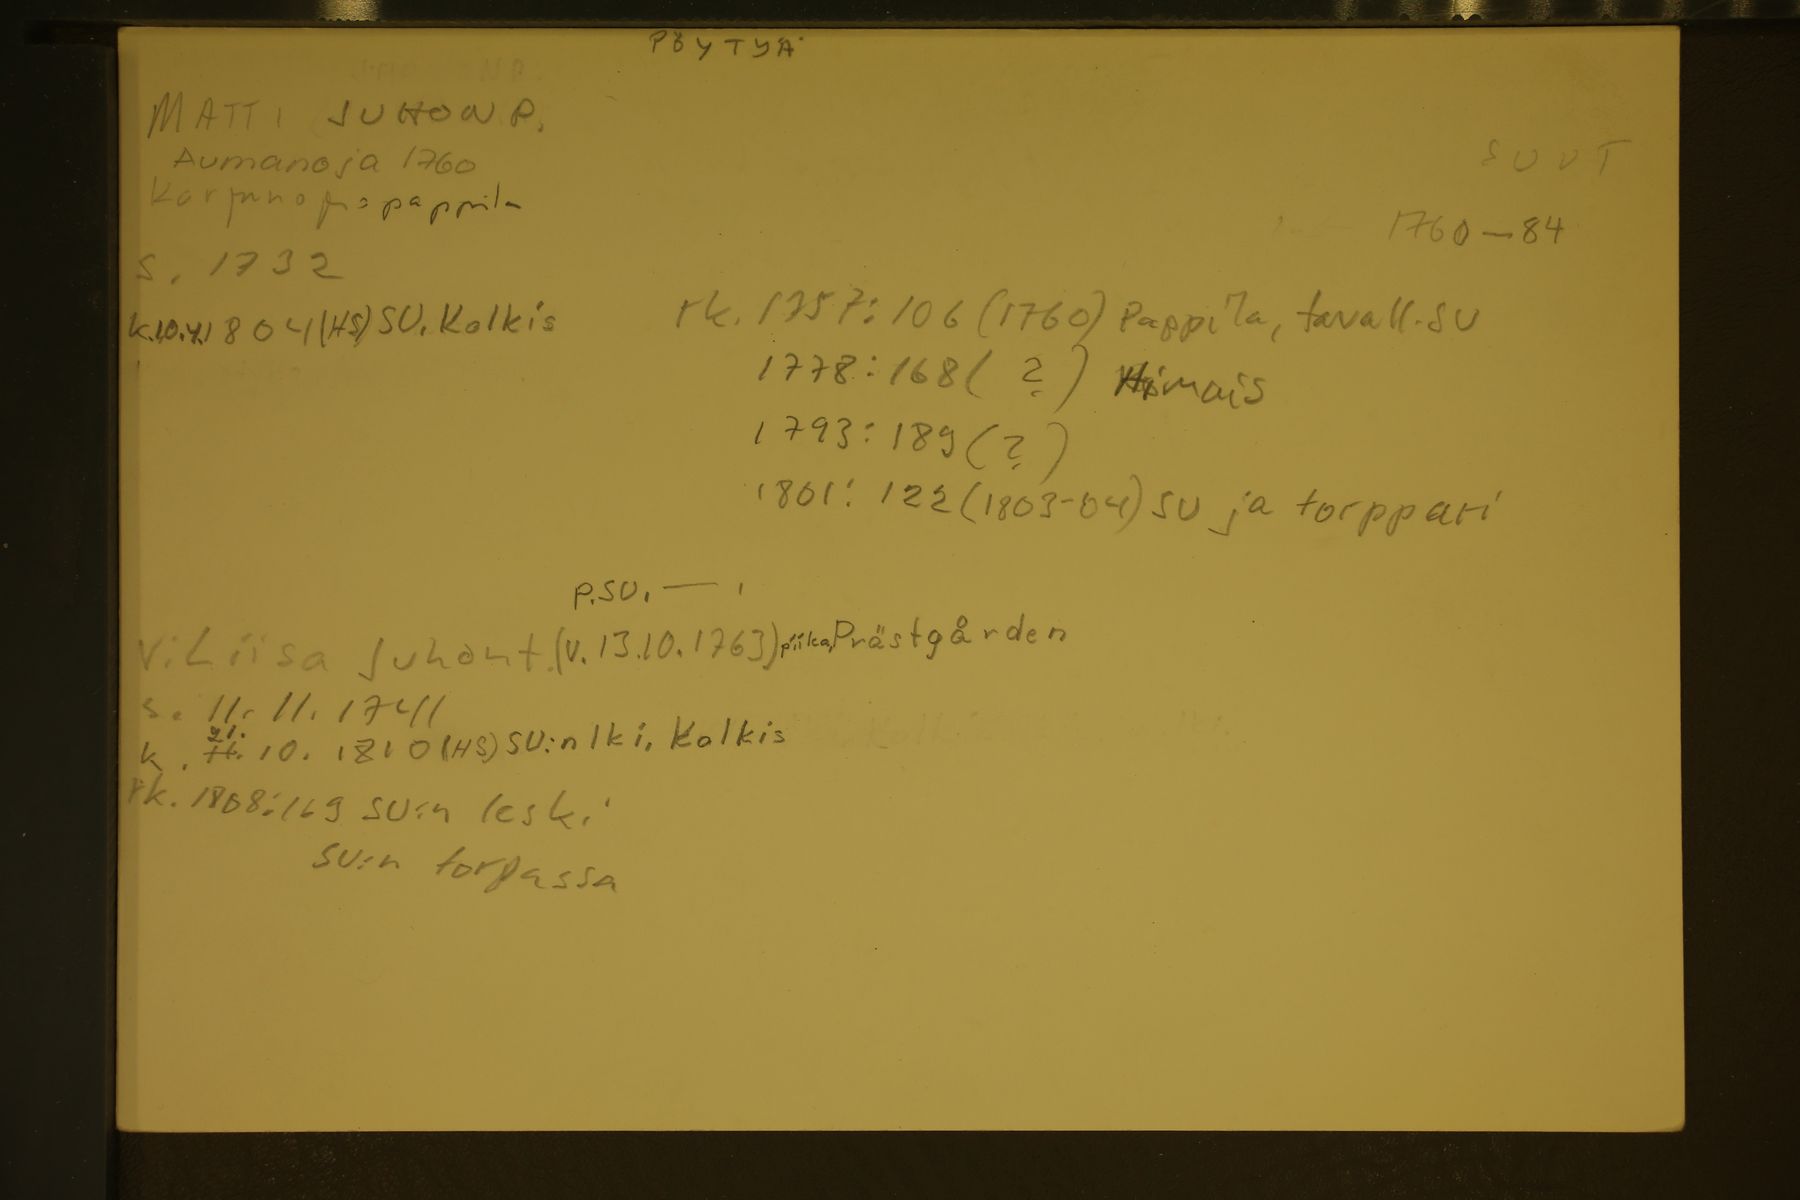 PÖYTYÄ
MATTI JUHON P.
Aumanoja 1760
pappila
SUUT
1760-84
s. 1732
k.10.4.1804(HS) SU. Kolkis
rk. 1757: 106 (1760) Pappila, tavall. SU
1778: 168 ( ? )
1793: 189 ( ? )
1801: 122 (1803-04) SU ja torppari
p.SU. — .
V:Liisa Juhont. (v. 13.10.1763) piika, Prästgården
s. 11. 11. 1741
k. 21. 10. 1810 (HS) SU:n lki. Kolkis
rk. 1808:169 SU:n leski
SU:n torpassa